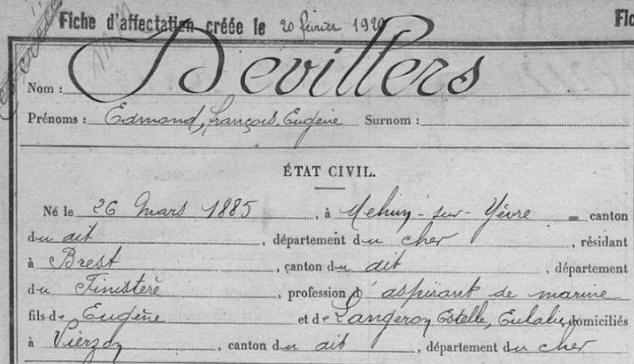 Fiche d'affectation créée le 20 février 192
Fic
Nom : Devillers
Prénoms : Edmond, François, Eugène Surnom :
ÉTAT CIVIL.
Né le 26 Mars 1885, à Mehun-sur-Yèvre canton
du dit, département du cher, résidant
à Brest, canton du dit, département
du Finistère, profession d'aspirant de marine
fils de Eugène et de Langeron Estelle, Eulalie, domiciliés
à Vierzon, canton du dit, département du cher